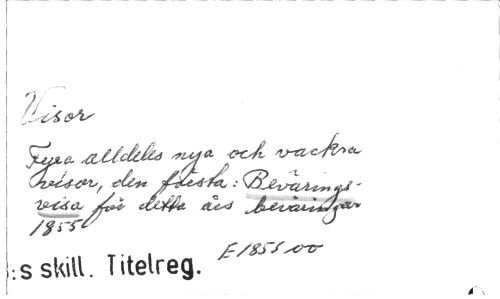 Visor
Fyra alldeles nya och vackra
visor, den första: Bevärings-
visa för detta års beväringar
1855
E 1855 oo
:s skill. Titelreg.